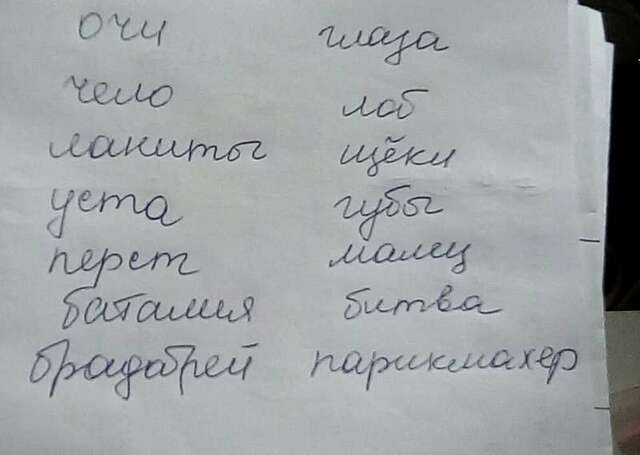 очи глаза
чело лоб
ланиты щёки
уста губы
перст малец
баталия битва
брадобрей парикмахер